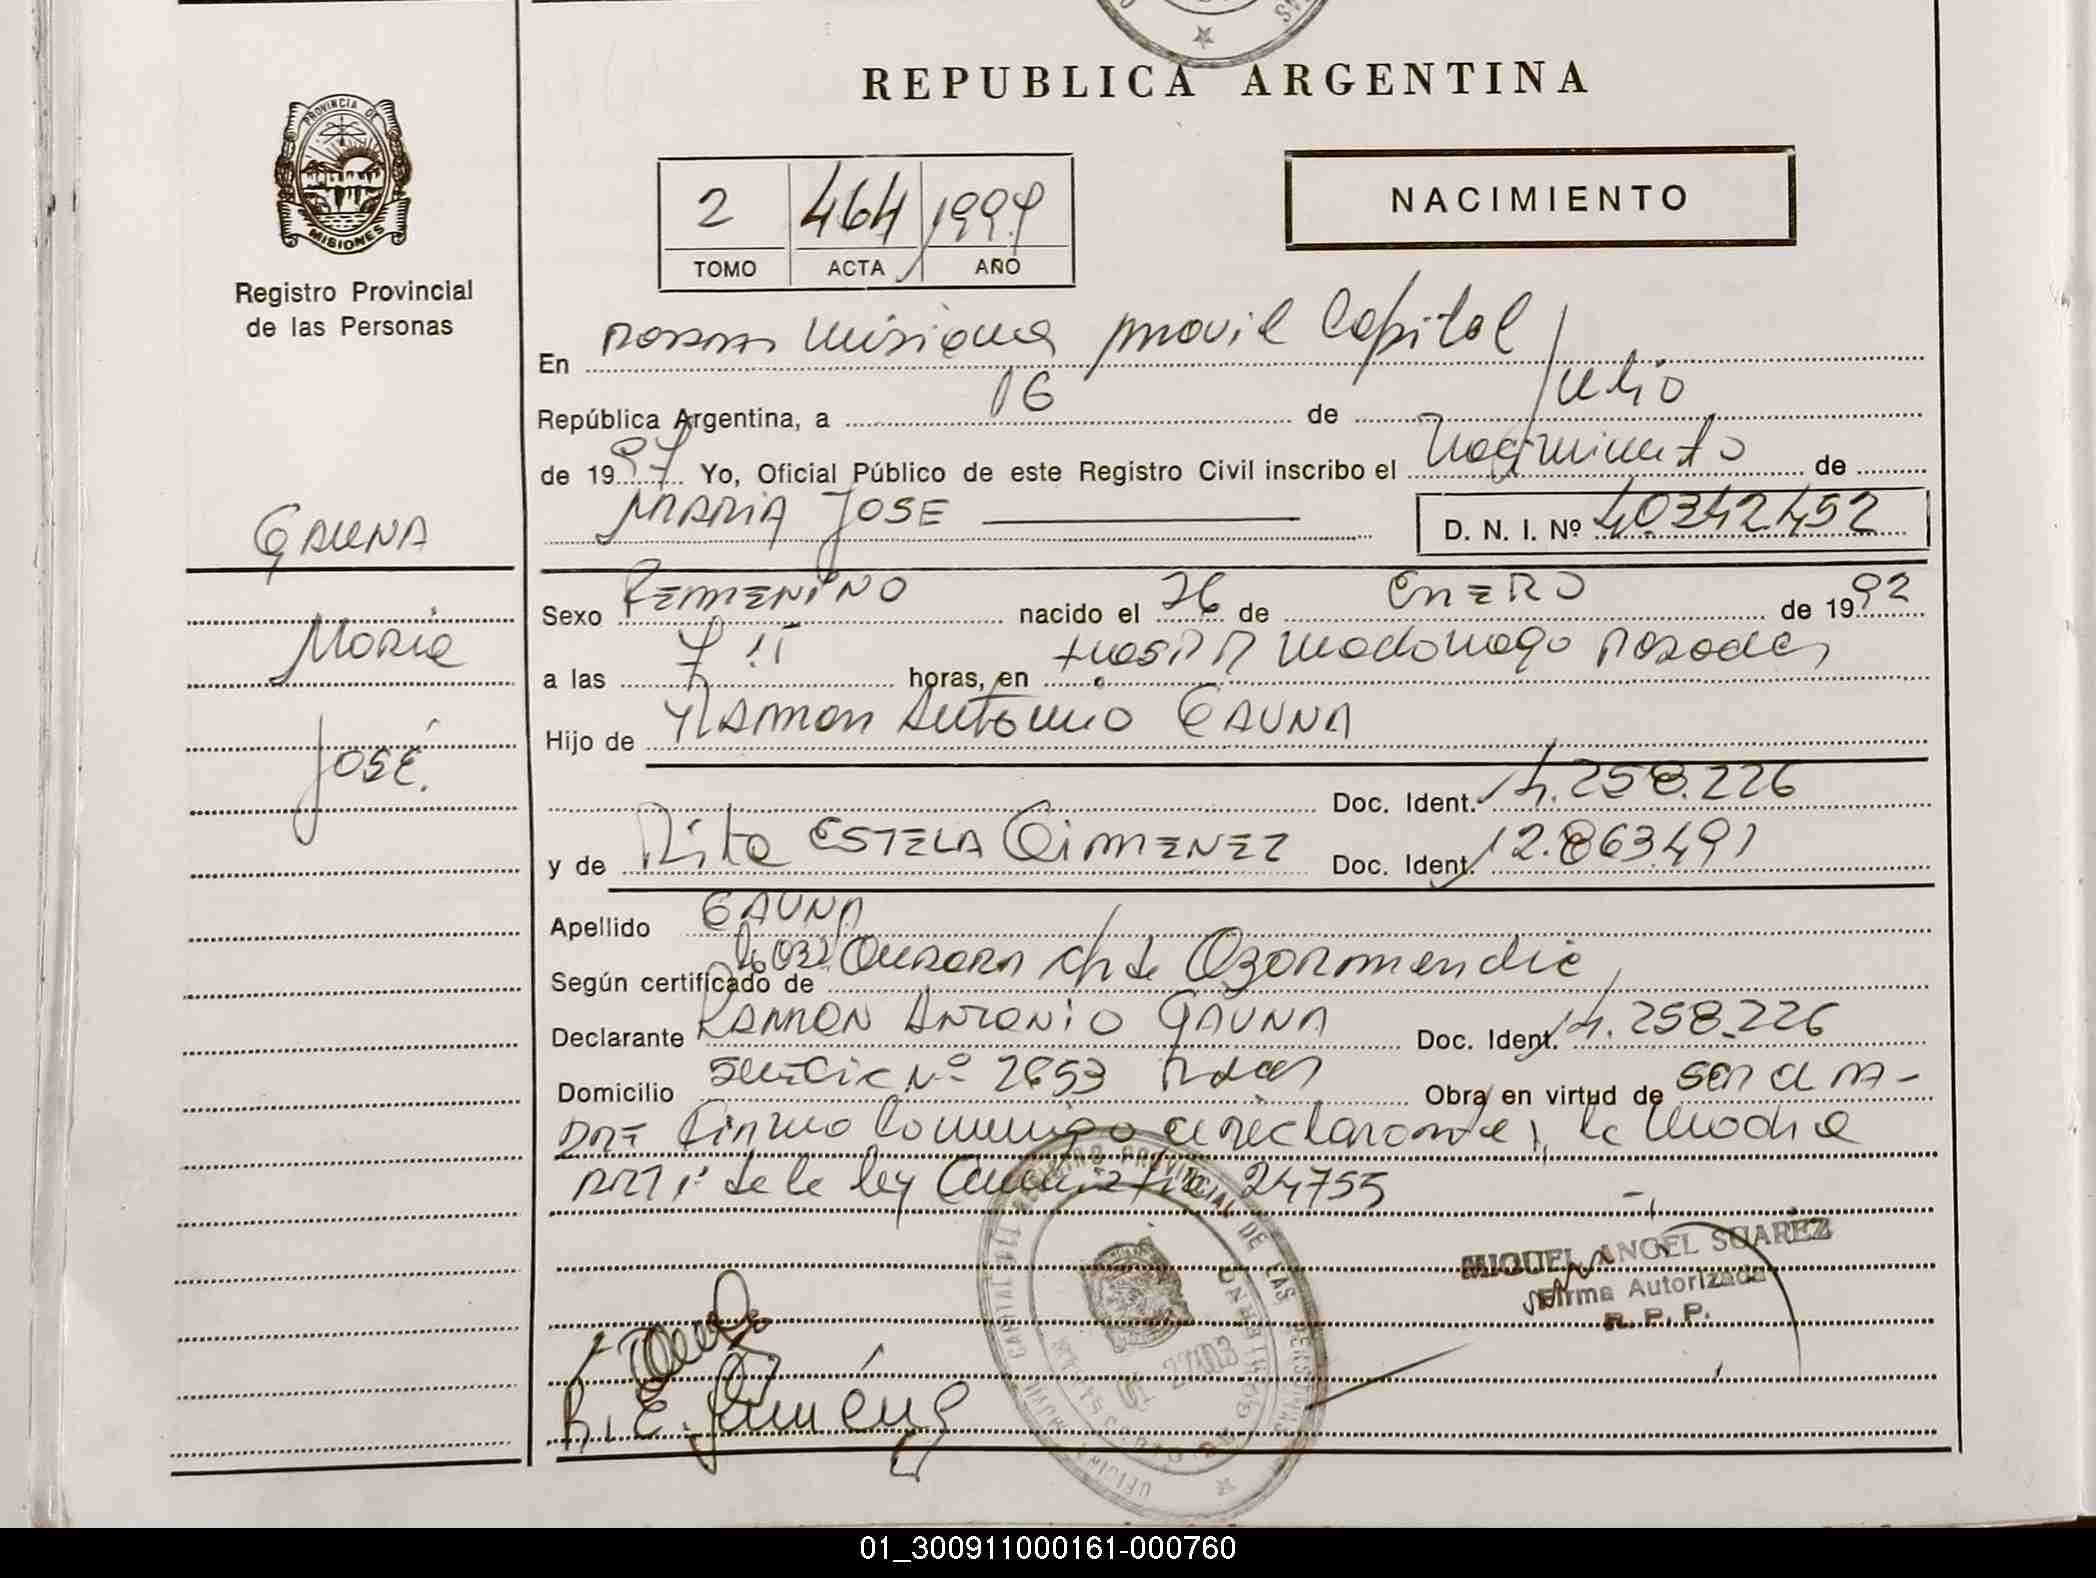 REPUBLICA ARGENTINA
PROVINCIA DE
MISIONES
Registro Provincial
de las Personas
2 464 1997
TOMO ACTA AÑO
NACIMIENTO
En Posadas Misiones movil Capital
República Argentina, a 16 de Julio
de 1997 Yo, Oficial Público de este Registro Civil inscribo el Nacimiento de
MARIA JOSE D. N. I. Nº 40342452
GAUNA
Maria
José.
Sexo FEMENINO nacido el 26 de ENERO de 1992
a las 7 horas, en Madariaga Posadas
Hijo de Ramon Antonio GAUNA
Doc. Ident. 14.258.226
y de Rita ESTELA GIMENEZ Doc. Ident. 12.863.491
Apellido GAUNA
Según certificado de Ozormendie
Declarante RAMON ANTONIO GAUNA Doc. Ident. 14.258.226
Domicilio Nº 2653 Obra en virtud de ser el PA-
DRE Firma conmigo el declarante, la Madre
ART 1º de la ley 24755
REGISTRO PROVINCIAL DE LAS PERSONAS
MIGUEL ANGEL SUAREZ
Firma Autorizada
R. P. P.
R. E. Giménez
01_300911000161-000760